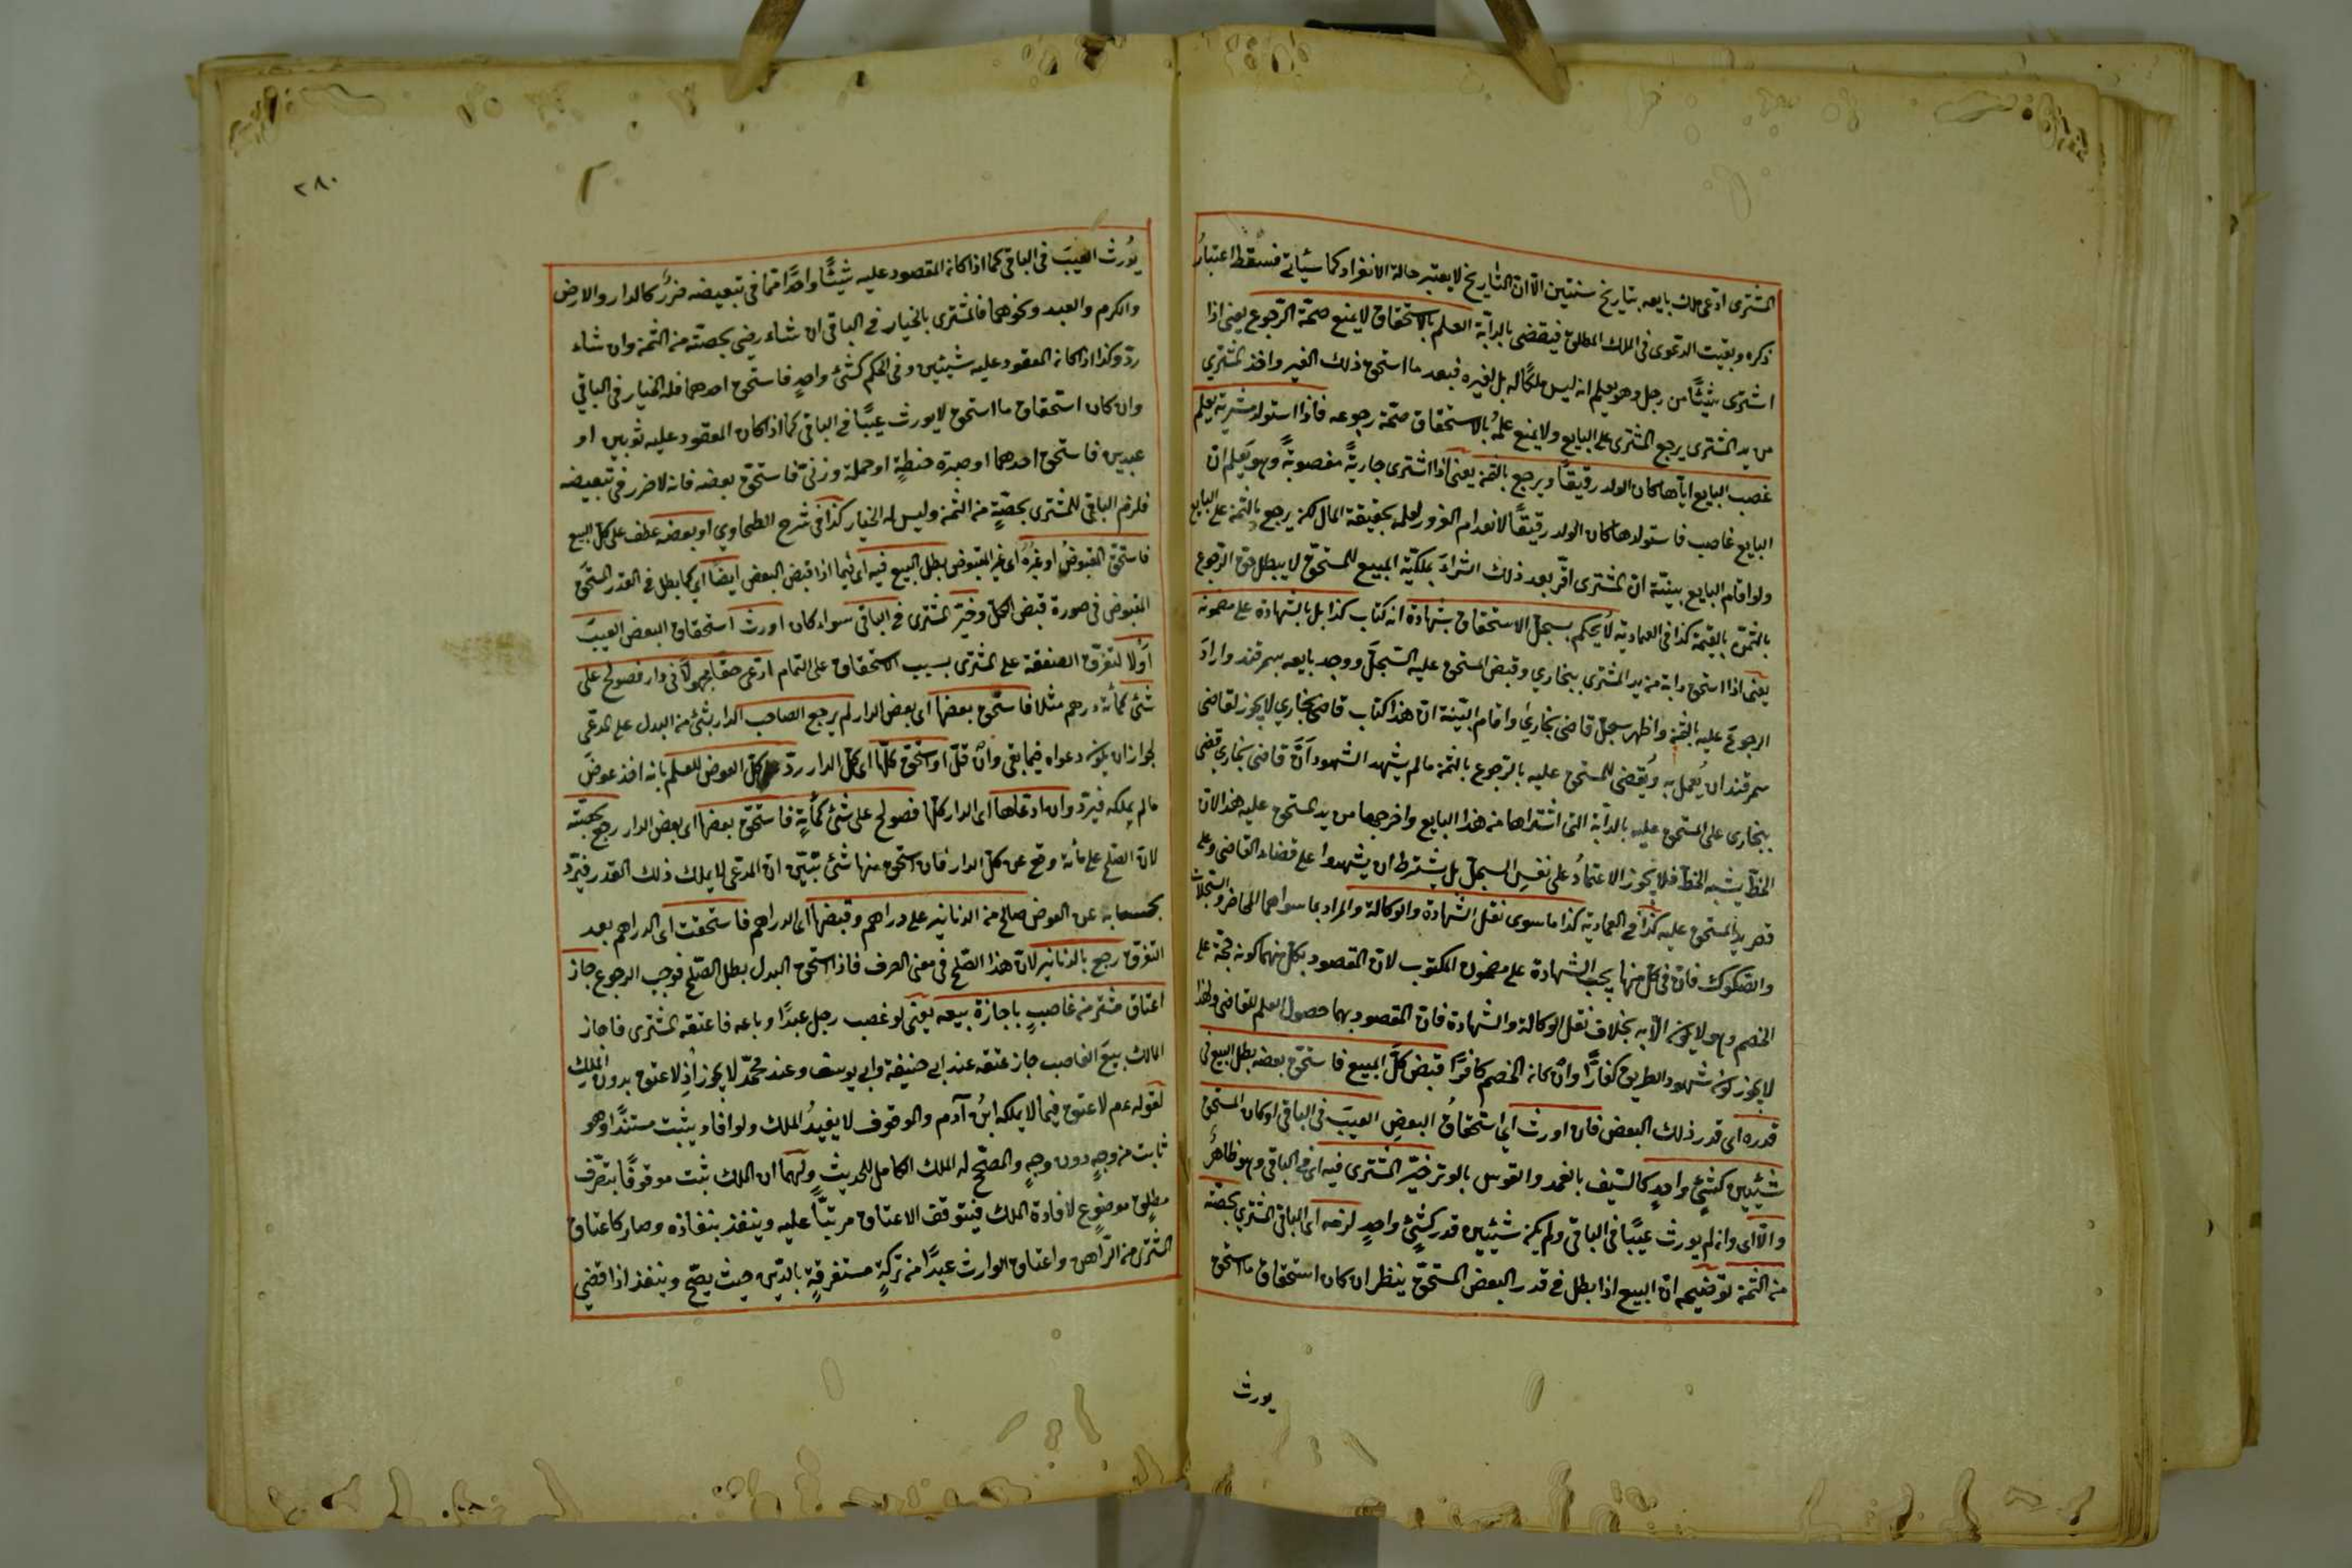 المشترى ادعى ملك بايعه بتاريخ سنتين الا ان التاريخ لا يعتبر حالة الانفراد كما سيأتي فسقط اعتبار
ذكره وبقيت الدعوى فى الملك المطلق فيقضى بالدابة العلم بالاستحقاق لا يمنع صحة الرجوع يعنى اذا
اشترى شيئًا من رجل وهو يعلم انه ليس ملكًا له بل لغيره فبعد ما استحق ذلك الغير واخذ المشترى
من يد المشترى يرجع المشترى على البايع ولا يمنع علمُه بالاستحقاق صحّة رجوعه فاذا استولد مشرية يعلم
غصب البايع اياها كان الولد رقيقًا ويرجع بالثمن يعنى اذا اشترى جاريةً مغصوبةً وهو يَعلم ان
البايع غاصب فاستولدها كان الولد رقيقًا لانعدام الغرور لعلمه بحقيقة الحال لكن يرجع بالثمن على البايع
ولو اقام البايع بينّة انّ المشترى اقرّ بعد ذلك الشراءَ بملكيّة المبيع للمستحقّ لا يبطل حق الرّجوع
بالثمن بالقيمة كذا فى العمادية لا يُحكم بسجلّ الاستحقاق بشهادة انه كتاب كذا بل بالشهادة على مضمونه
يعنى اذا استحق دابة من يد المشترى ببخارى وقبض المستحق عليه السّجلّ ووجد بايعه بسمرقند واراد
الرجوعَ عليه بالثمن واظهر سجلّ قاضى بخارى واقام البيّنة انّ هذا كتاب قاضى بخارى لا يجوز لقاضى
سمرقند ان يُعمل به ويُقضى للمستحق عليه بالرّجوع بالثمن ما لم يشهد الشهود انّ قاضى بخارى قضى
ببخارى على المستحق عليه بالدابة التى اشتراها من هذا البايع واخرجها من يد المستحق عليه هذا لان
الخطّ يشبه الخطّ فلا يجوز الاعتمادُ على نفسِ السجلّ بل يشترط ان يشهدوا على قضاء القاضى وعلى
قصر يد المستحق عليه كذا فى العمادية كذا ما سوى نقل الشهادة والوكالة والمراد بما سواهما المحاضر والسّجلّات
والصّكوك فانّ فى كلّ منها يجب الشهادة على مضمون المكتوب لان المقصود بكل منهما كونه حجّة على
الخصم وهو لا يكون الّا به بخلاف نقل الوكالة والشهادة فانّ المقصود بهما حصول العلم للقاضى ولهذا
لا يجوز كون شهود الطريق كفارًا وان كان الخصم كافرًا قبض كلّ المبيع فاستحقّ بعضه بطل البيع فى
قدره اى قدر ذلك البعض فان اورث اى استحقاقُ البعضِ العيبَ فى الباقى او كان المستحق
شيئين كشئٍ واحدٍ كالسّيف بالغمد والقوس بالوتر خيّر المشترى فيه اى فى الباقى وهو ظاهرٌ
والّا اى وان لم يورث عيبًا فى الباقى ولم يكن شيئين قدر كشئٍ واحدٍ لزمه اى الباقى المشترى بحصّته
من الثمن توضيحه انّ البيع اذا بطل فى قدر البعض المستحقّ ينظر ان كان استحقاق ما استحق
يورث
٢٨٠
يُورث العيبَ فى الباقى كما اذا كان المقصود عليه شيئًا واحدًا مما فى تبعيضه ضررٌ كالدار والارض
والكرم والعبد ونحوهما فالمشترى بالخيار فى الباقى ان شاء رضى بحصته من الثمن وان شاء
ردّ وكذا اذا كان المعقود عليه شيئين وفى الحكم كشئ واحدٍ فاستحق احدهما فله الخيار فى الباقى
وان كان استحقاق ما استحق لا يورث عيبًا فى الباقى كما اذا كان المعقود عليه ثوبين او
عبدين فاستحق احدهما او صبرة حنطةٍ او حملة وزنىّ فاستحقّ بعضه فانه لا ضرر فى تبعيضه
فلزم الباقى للمشترى بحصّةٍ من الثمن وليس له الخيار كذا فى شرح الطحاوى او بعضه عطف على كلّ المبيع
فاستحقّ المقبوضُ او غيرُه اى غير المقبوض بطل البيع فيه اى فيما اذا قبض البعض ايضًا اى كما بطل فى القدر المستحَق
المقبوض فى صورة قبض الكلّ وخيّر المشترى فى الباقى سواء كان اورث استحقاق البعض العيبَ
اوّلًا لتفرّق الصفقة على المشترى بسبب الاستحقاق على التمام ادّعى حقًا مجهولًا فى دار فصولح على
شئ كمائة درهم مثلا فاستحق بعضها اى بعض الدار لم يرجع الصاحب الدار بشئ من البدل على المدعى
لجواز ان يكون دعواه فيما بقى وان قلّ او استحق كلّها اى كلّ الدار ردّ كلّ العوض للعلم بانه اخذ عوضَ
ما لم يملكه فيردّ وان ادعاها اى الدار كلّها فصولح على شئ كمائةٍ فاستحقّ بعضها اى بعض الدار رجع بحصّته
لان الصّلح على مائة وقع عن كلّ الدار فان استحق منها شئ تبيّن انّ المدعى لا يملك ذلك القدر فيردّ
بحسابه عن العوض صالح من الدنانير على دراهم وقبضها اى الدراهم فاستحقت اى الدراهم بعد
التفرّق رجع بالدنانير لانّ هذا الصّلح فى معنى الصرف فاذا استحق البدل بطل الصّلح فوجب الرجوع جاز
اعتاق مشتر من غاصبٍ باجازة بيعه يعنى لو غصب رجل عبدًا وباعه فاعتقه المشترى فاجاز
المالك بيعَ الغاصب جاز عتقه عند ابى حنيفة وابى يوسف وعند محمّد لا يجوز اذ لا عتق بدون الملك
لقوله عم لا عتق فيما لا يملكه ابنُ آدم والموقوف لا يفيدُ الملك ولو افاد يثبت مستندًا وهو
ثابت من وجهٍ دون وجهٍ والمصحّح له الملك الكامل للحديث ولهما ان الملك ثبت موقوفًا بتصرّف
مطلق موضوعٍ لافادة الملك فيتوقف الاعتاق مرتبًا عليه وينفذ بنفاذه وصار كاعتاق
المشترى من الرّاهن واعتاق الوارث عبدًا من تركةٍ مستغرقةٍ بالدّين حيث يصحّ وينفذ اذا قضى